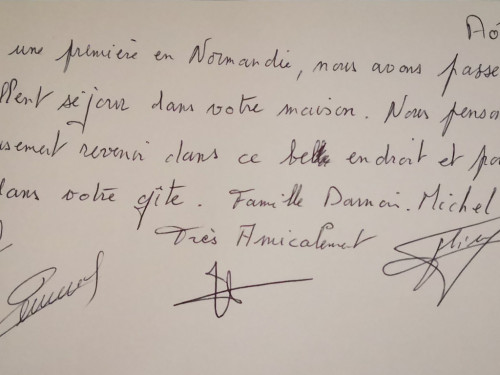 Aoû
une première en Normandie, nous avons passé
llent séjour dans votre maison. Nous penson
usement revenir dans ce bel endroit et pou
dans votre gîte. Famille Damoi. Michel
Très Amicalement